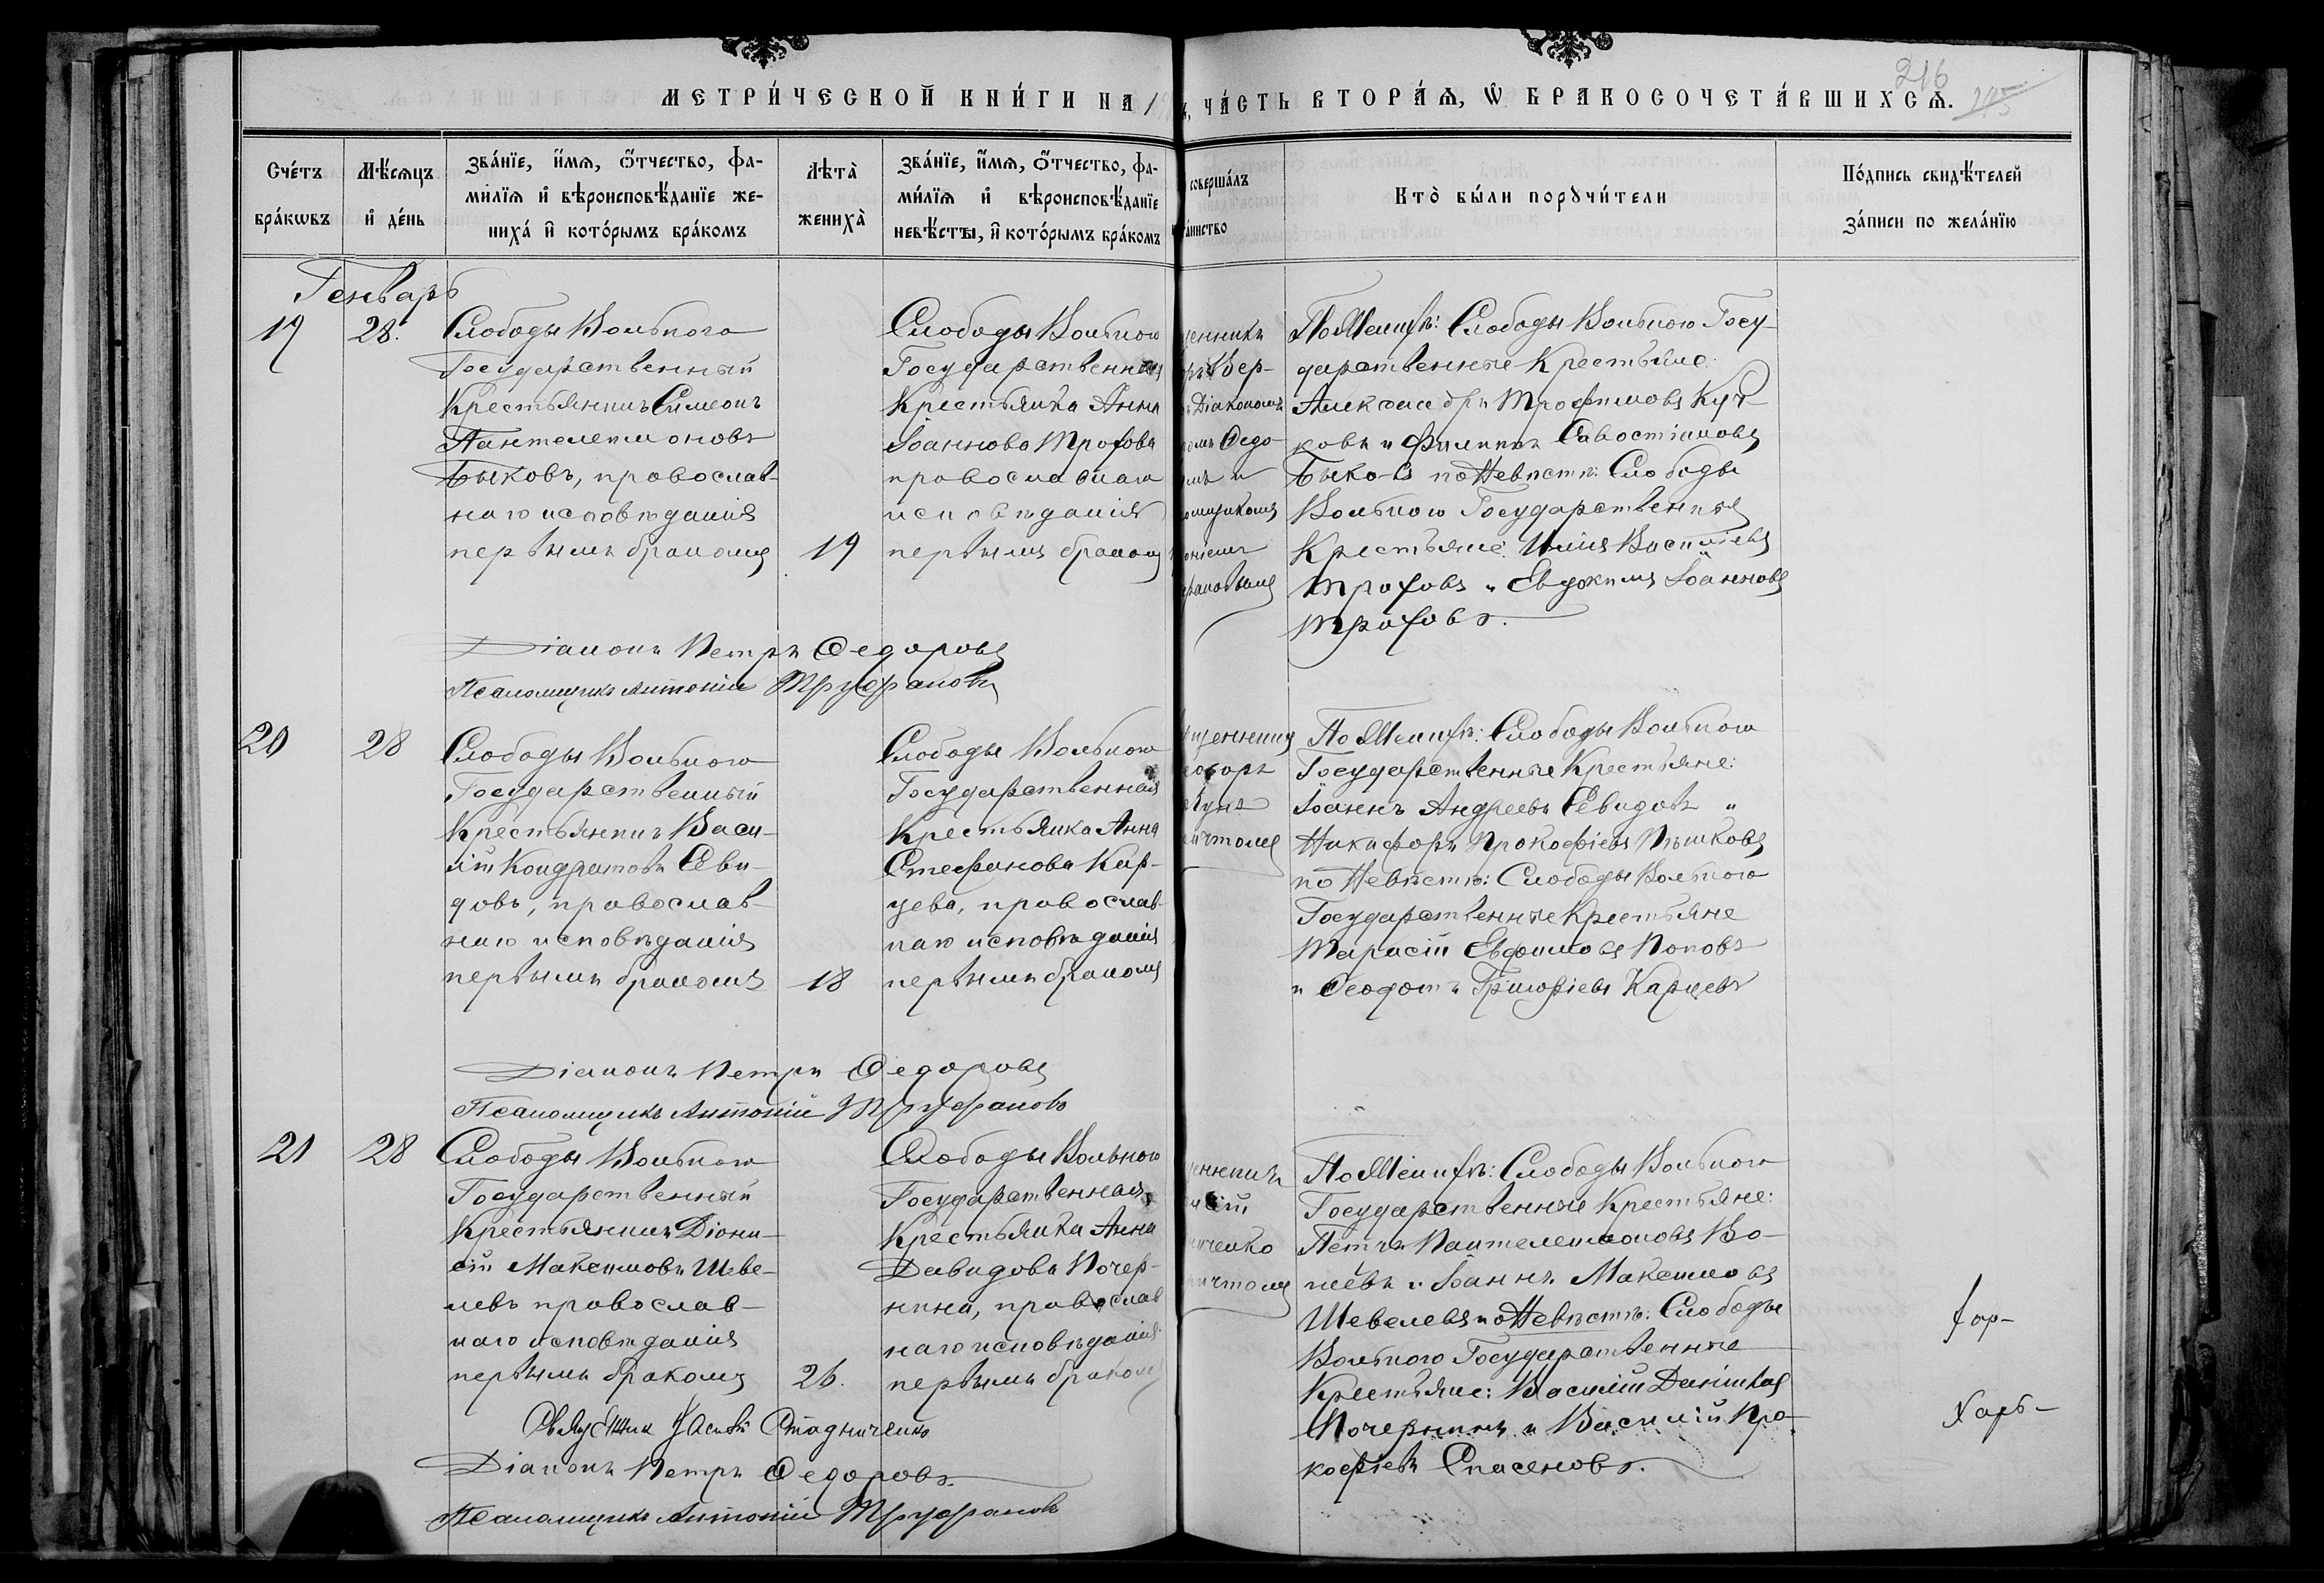 МЕТРИ́ЧЕСКОЙ КНИ́ГИ НА 1
ЧА́СТЬ ВТОРА́Ѧ, Ѡ БРАКОСОЧЕТА́ВШИХСѦ.
216
215
Сче́тъ бра́кѡвъ
Мѣ́сѧцъ и҆ де́нь
Зва́нїе, и҆́мѧ, ѻ҆́тчество, фа-
ми́лїѧ и҆ вѣроисповѣ́данїе же-
ниха́ и҆ кото́рымъ бра́комъ
Лѣта̀ жениха̀
Зва́нїе, и҆́мѧ, ѻ҆́тчество, фа-
ми́лїѧ и҆ вѣроисповѣ́данїе
невѣ́сты, и҆ кото́рымъ бра́комъ
соверша́лъ
Кто̀ бы́ли порꙋчи́тели
По́дпись свидѣ́телей
за́писи по жела́нїю
Генварь
19
28.
Слободы Вольнаго
Государственный
Крестьянинъ Симеонъ
Пантелеимоновъ
Быковъ, православ-
наго исповѣданія
первымъ бракомъ
19
Слободы Вольнаго
Государственная
Крестьянка Анна
Іоаннова Трофова
православнаго
исповѣданія
первымъ бракомъ
ценникъ
Вер-
Діакономъ
Ѳедо-
и
омщикомъ
оніемъ
фановымъ
По Женихѣ: Слободы Вольнаго Госу-
дарственные Крестьяне:
Александръ Трофимовъ
ковъ и Филиппъ Савостіановъ
Быковъ по Невѣстѣ: Слободы
Вольнаго Государственные
Крестьяне: Илія Василіевъ
Трофовъ и Евдокимъ Іоанновъ
Трофовъ.
Діаконъ Петръ Ѳедоровъ
Псаломщикъ Антоній Труфановъ
20
28
Слободы Вольнаго
Государственный
Крестьянинъ Васи-
лій Кондратовъ Севи-
довъ, православ-
наго исповѣданія
первымъ бракомъ
18
Слободы Вольнаго
Государственная
Крестьянка Анна
Стефанова Кар-
цева, православ-
наго исповѣданія
первымъ бракомъ
ященникъ
чтомъ
По Женихѣ: Слободы Вольнаго
Государственные Крестьяне:
Іоаннъ Андреевъ Севидовъ и
Никифоръ Прокофіевъ Пѣшковъ
по Невѣстѣ: Слободы Вольнаго
Государственные Крестьяне
Тарасій Евфимовъ Поповъ
и Ѳеодотъ Григоріевъ Карцевъ
Діаконъ Петръ Ѳедоровъ
Псаломщикъ Антоній Труфановъ
21
28
Слободы Вольнаго
Государственный
Крестьянинъ Діони-
сій Максимовъ Шеве-
левъ православ-
наго исповѣданія
первымъ бракомъ
26.
Слободы Вольнаго
Государственная
Крестьянка Анна
Давидова Почер-
нина, православ
наго исповѣданія
первымъ бракомъ
ченко
чтомъ
По Женихѣ: Слободы Вольнаго
Государственные Крестьяне:
Петръ Пантелеимоновъ
и Іоаннъ Максимовъ
Шевелевъ по Невѣстѣ: Слободы
Вольнаго Государственные
Крестьяне: Василій Даніиловъ
Почернинъ и Василій Про-
кофіевъ Спасеновъ.
Хар-
Харь-
Священникъ Стадниченко
Діаконъ Петръ Ѳедоровъ.
Псаломщикъ Антоній Труфановъ